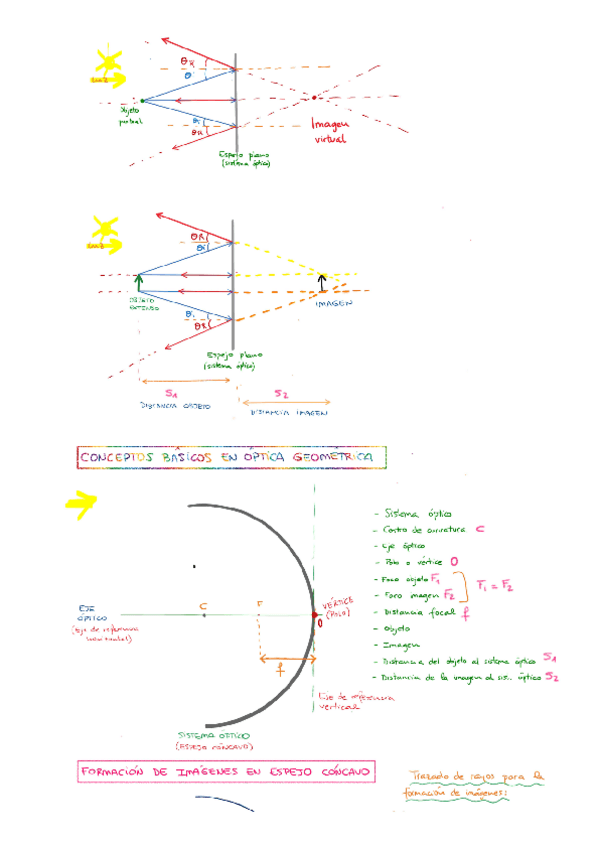 θR
θi
LUZ
Objeto
puntual
θi
θR
Imagen
virtual
Espejo plano
(sistema óptico)
θR
θi
LUZ
OBJETO
EXTENSO
IMAGEN
θi
θR
Espejo plano
(sistema óptico)
S1
S2
DISTANCIA OBJETO
DISTANCIA IMAGEN
CONCEPTOS BÁSICOS EN ÓPTICA GEOMÉTRICA
- Sistema óptico
- Centro de curvatura C
- Eje óptico
- Polo o vértice O
- Foco objeto F1
- Foco imagen F2
F1 = F2
- Distancia focal f
- Objeto
- Imagen
- Distancia del objeto al sistema óptico S1
- Distancia de la imagen al sis. óptico S2
EJE
ÓPTICO
(eje de referencia
horizontal)
C
F
VÉRTICE
(POLO)
O
f
Eje de referencia
vertical
SISTEMA ÓPTICO
(ESPEJO CÓNCAVO)
FORMACIÓN DE IMÁGENES EN ESPEJO CÓNCAVO
Trazado de rayos para la
formación de imágenes: